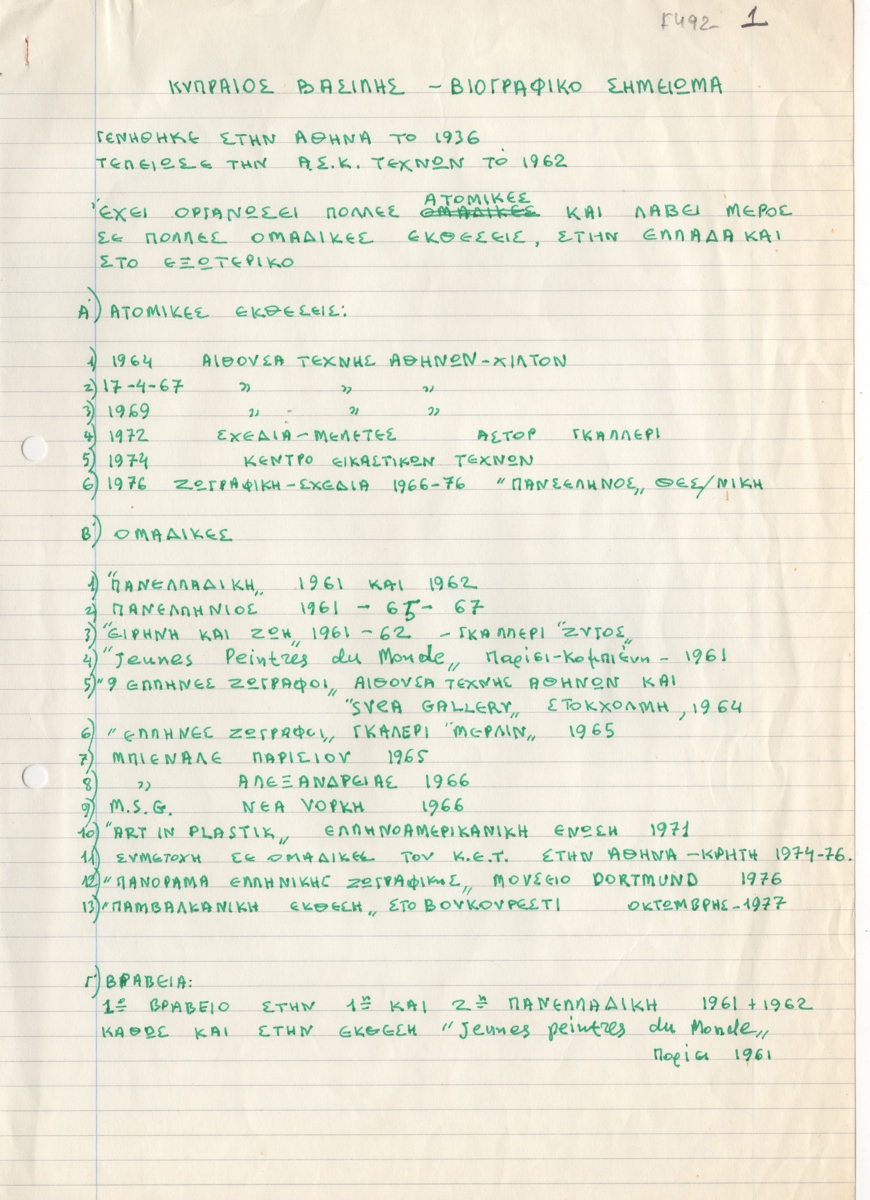 Γ492- 1
ΚΥΠΡΑΙΟΣ ΒΑΣΙΛΗΣ - ΒΙΟΓΡΑΦΙΚΟ ΣΗΜΕΙΩΜΑ
ΓΕΝΗΘΗΚΕ ΣΤΗΝ ΑΘΗΝΑ ΤΟ 1936
ΤΕΛΕΙΩΣΕ ΤΗΝ Α.Σ.Κ. ΤΕΧΝΩΝ ΤΟ 1962
ΑΤΟΜΙΚΕΣ
ΈΧΕΙ ΟΡΓΑΝΩΣΕΙ ΠΟΛΛΕΣ ΟΜΑΔΙΚΕΣ ΚΑΙ ΛΑΒΕΙ ΜΕΡΟΣ
ΣΕ ΠΟΛΛΕΣ ΟΜΑΔΙΚΕΣ ΕΚΘΕΣΕΙΣ, ΣΤΗΝ ΕΛΛΑΔΑ ΚΑΙ
ΣΤΟ ΕΞΩΤΕΡΙΚΟ
Α') ΑΤΟΜΙΚΕΣ ΕΚΘΕΣΕΙΣ:
1) 1964 ΑΙΘΟΥΣΑ ΤΕΧΝΗΣ ΑΘΗΝΩΝ-ΧΙΛΤΟΝ
2) 17-4-67 " " "
3) 1969 " - " "
4) 1972 ΣΧΕΔΙΑ-ΜΕΛΕΤΕΣ ΑΣΤΟΡ ΓΚΑΛΛΕΡΙ
5) 1974 ΚΕΝΤΡΟ ΕΙΚΑΣΤΙΚΩΝ ΤΕΧΝΩΝ
6) 1976 ΖΩΓΡΑΦΙΚΗ-ΣΧΕΔΙΑ 1966-76 "ΠΑΝΣΕΛΗΝΟΣ" ΘΕΣ/ΝΙΚΗ
Β') ΟΜΑΔΙΚΕΣ
1) "ΠΑΝΕΛΛΑΔΙΚΗ" 1961 ΚΑΙ 1962
2) ΠΑΝΕΛΛΗΝΙΟΣ 1961 - 65 - 67
3) "ΕΙΡΗΝΗ ΚΑΙ ΖΩΗ" 1961-62 - ΓΚΑΛΛΕΡΙ "ΖΥΓΟΣ"
4) "Jeunes Peintres du Monde" Παρίσι-Κομπιένη - 1961
5) "9 ΕΛΛΗΝΕΣ ΖΩΓΡΑΦΟΙ" ΑΙΘΟΥΣΑ ΤΕΧΝΗΣ ΑΘΗΝΩΝ ΚΑΙ
"SVEA GALLERY" ΣΤΟΚΧΟΛΜΗ, 1964
6) "ΕΛΛΗΝΕΣ ΖΩΓΡΑΦΟΙ" ΓΚΑΛΕΡΙ "ΜΕΡΛΙΝ" 1965
7) ΜΠΙΕΝΑΛΕ ΠΑΡΙΣΙΟΥ 1965
8) " ΑΛΕΞΑΝΔΡΕΙΑΣ 1966
9) M.S.G. ΝΕΑ ΥΟΡΚΗ 1966
10) "ART IN PLASTIK" ΕΛΛΗΝΟΑΜΕΡΙΚΑΝΙΚΗ ΕΝΩΣΗ 1971
11) ΣΥΜΕΤΟΧΗ ΣΕ ΟΜΑΔΙΚΕΣ ΤΟΥ Κ.Ε.Τ. ΣΤΗΝ ΑΘΗΝΑ -ΚΡΗΤΗ 1974-76.
12) "ΠΑΝΟΡΑΜΑ ΕΛΛΗΝΙΚΗΣ ΖΩΓΡΑΦΙΚΗΣ" ΜΟΥΣΕΙΟ DORTMUND 1976
13) "ΠΑΜΒΑΛΚΑΝΙΚΗ ΕΚΘΕΣΗ" ΣΤΟ ΒΟΥΚΟΥΡΕΣΤΙ ΟΚΤΩΜΒΡΗΣ-1977
Γ') ΒΡΑΒΕΙΑ:
1ο ΒΡΑΒΕΙΟ ΣΤΗΝ 1η ΚΑΙ 2η ΠΑΝΕΛΛΑΔΙΚΗ 1961+1962
ΚΑΘΩΣ ΚΑΙ ΣΤΗΝ ΕΚΘΕΣΗ "Jeunes peintres du Monde"
Παρίσι 1961